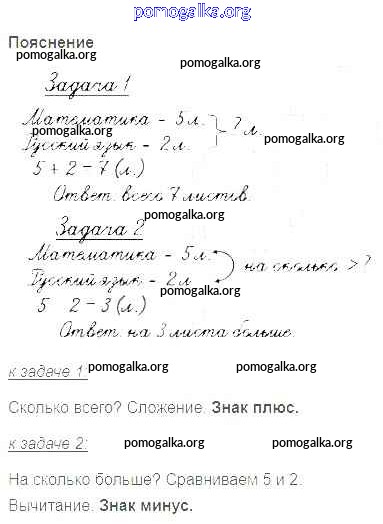 pomogalka.org
Пояснение
pomogalka.org pomogalka.org
Задача 1
pomogalka.org
Математика – 5 л. ? л.
pomogalka.org pomogalka.org
Русский язык – 2 л.
5 + 2 – 7 (л.)
pomogalka.org
Ответ. всего 7 листов.
pomogalka.org
Задача 2
pomogalka.org
Математика – 5 л. на сколько > ?
Русский язык – 2 л
pomogalka.org pomogalka.org
5 2 – 3 (л.)
Ответ. на 3 листа больше.
pomogalka.org pomogalka.org
к задаче 1:
Сколько всего? Сложение. Знак плюс.
к задаче 2: pomogalka.org pomogalka.org
На сколько больше? Сравниваем 5 и 2.
Вычитание. Знак минус.